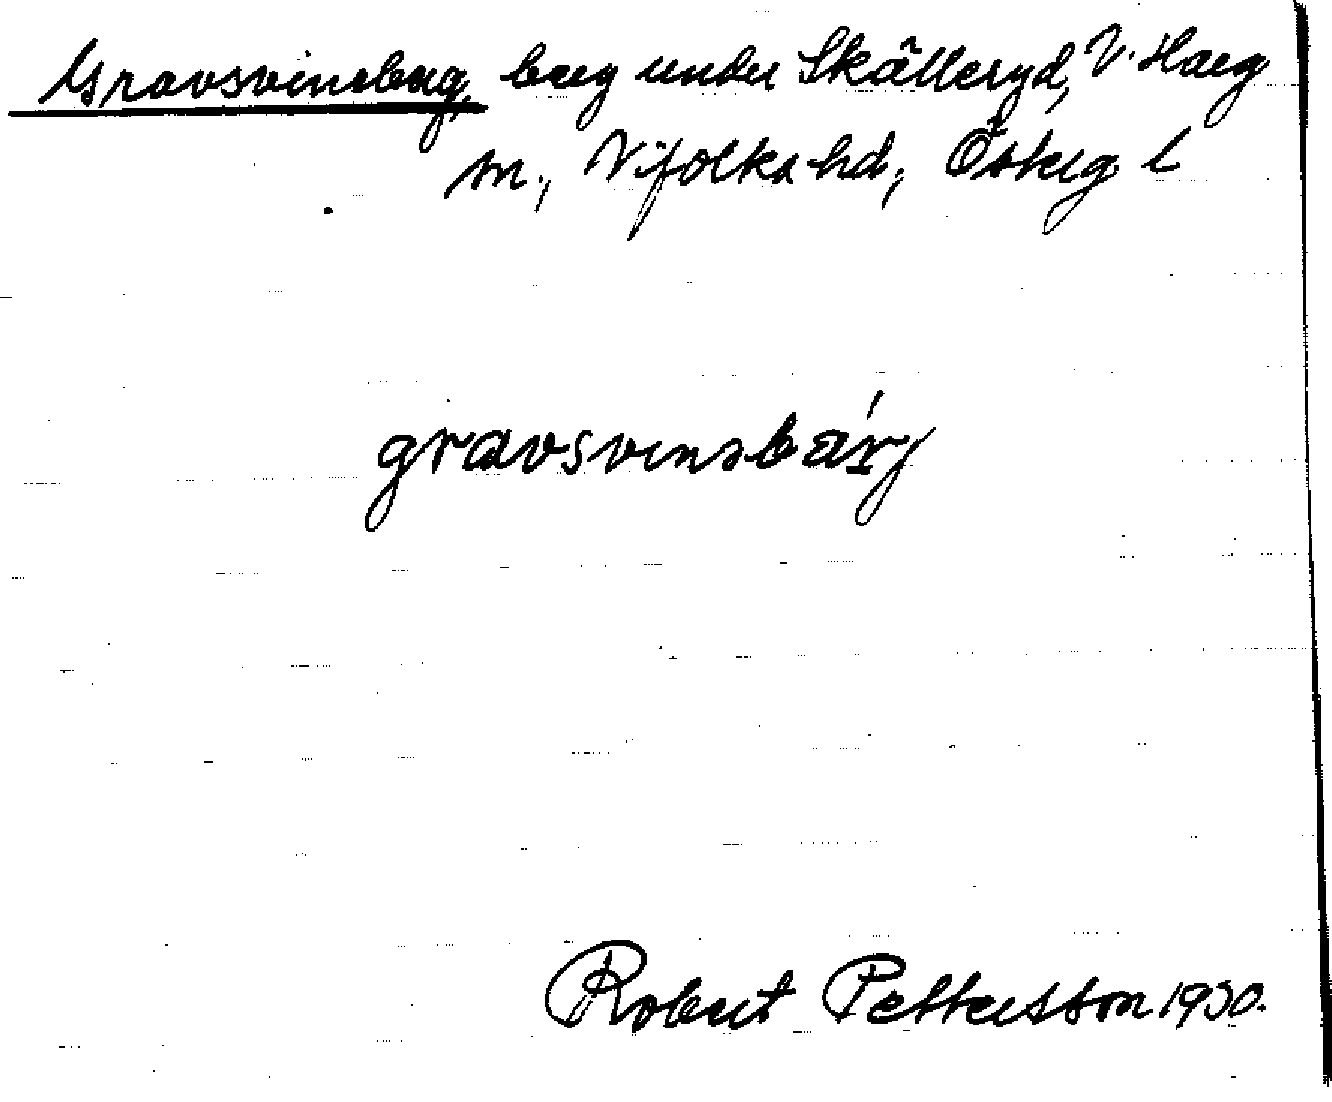 Gravsvinsberg, berg under Skälleryd, V. Harg
sn., Vifolka hd, Österg. l
gravsvinsbärj
Robert Pettersson 1930.